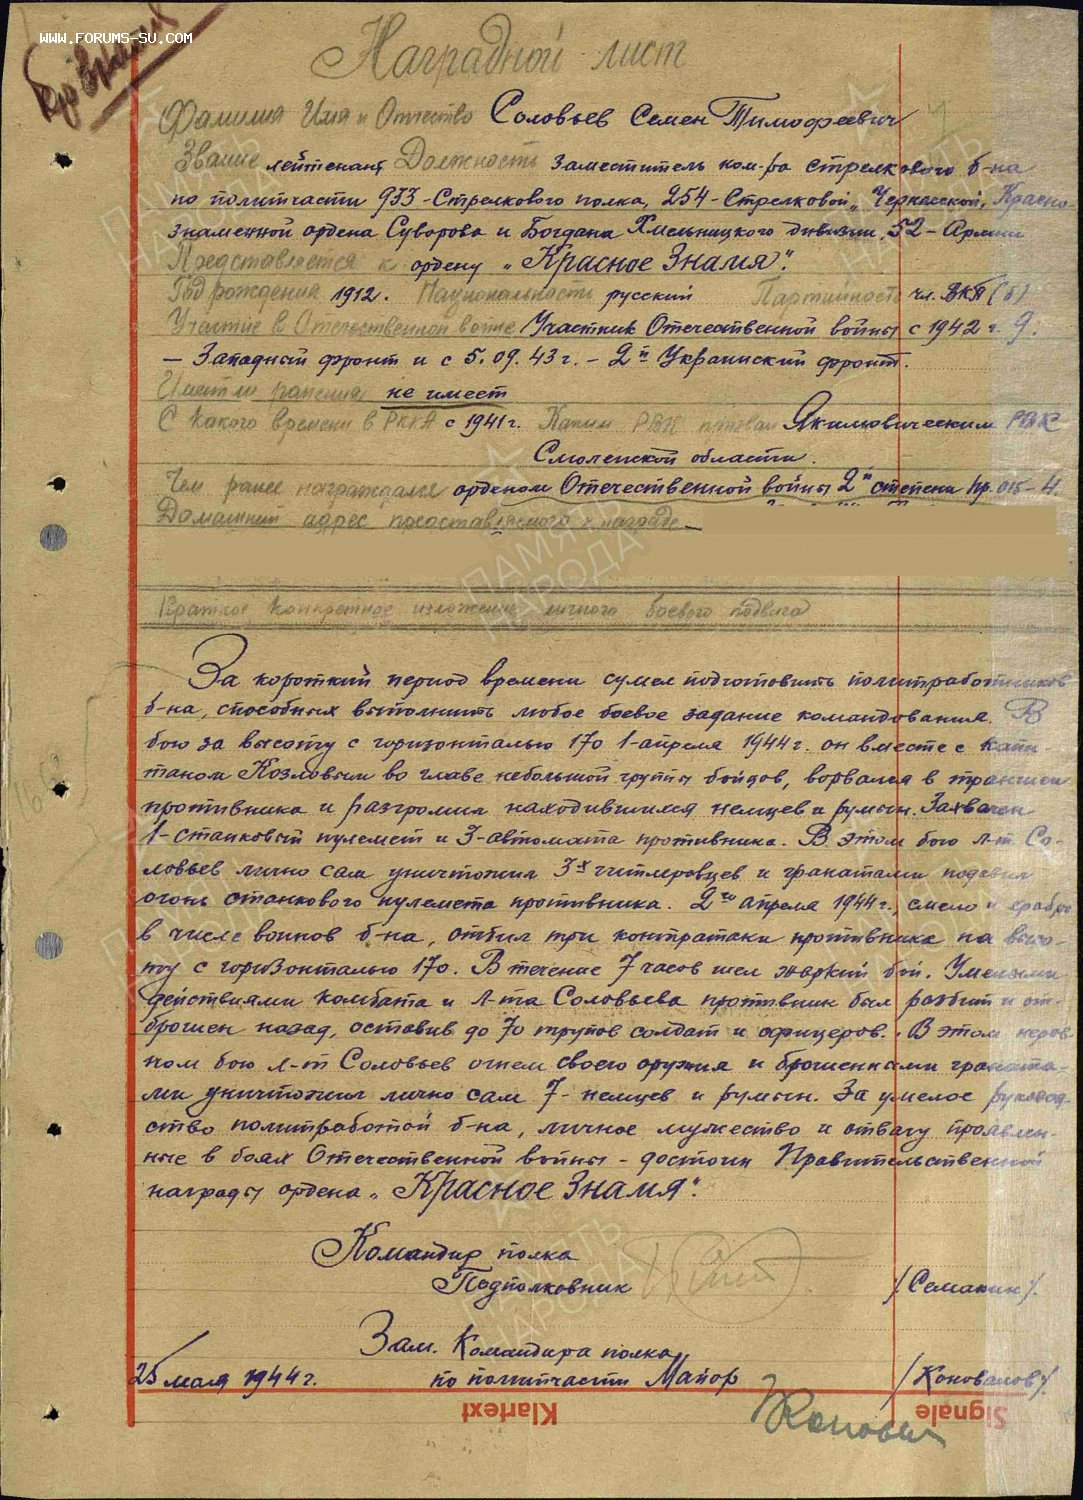 www.forums-su.com
Наградной лист
Фамилия Имя и Отчество Соловьев Семен Тимофеевич
Звание лейтенант Должность заместитель ком-ра стрелкового б-на
по политчасти 933-Стрелкового полка, 254-Стрелковой „Черкасской, Красно-
знаменной ордена Суворова и Богдана Хмельницкого дивизии, 52-Армии
Представляется к ордену „Красное Знамя".
Год рождения 1912. Национальность русский Партийность чл. ВКП(б)
Участие в Отечественной войне Участник Отечественной войны с 1942 г.
— Западный фронт и с 5.09.43 г. – 2й Украинский фронт.
Имеет ли ранения не имеет
С какого времени в РККА с 1941 г. Каким РВК призван РВК
Смоленской области.
Чем ранее награждался орденом Отечественной войны 2й степени пр. 015-4.
Домашний адрес представляемого к награде –
Краткое конкретное изложение личного боевого подвига
За короткий период времени сумел подготовить политработников
б-на, способных выполнить любое боевое задание командования. В
бою за высоту с горизонталью 170 1-апреля 1944 г. он вместе с капи-
таном Козловым во главе небольшой группы бойцов, ворвался в траншеи
противника и разгромил находившихся немцев и румын. Захвачен
1-станковый пулемет и 3-автомата противника. В этом бою л-т Со-
ловьев лично сам уничтожил 3х гитлеровцев и гранатами подавил
огонь станкового пулемета противника. 2го апреля 1944 г., смело и храбро
в числе воинов б-на, отбил три контратаки противника на высо-
ту с горизонталью 170. В течение 7 часов шел жаркий бой. Умелыми
действиями комбата и л-та Соловьева противник был разбит и от-
брошен назад, оставив до 70 трупов солдат и офицеров. В этом нерав-
ном бою л-т Соловьев огнем своего оружия и брошенными граната-
ми уничтожил лично сам 7- немцев и румын. За умелое руковод-
ство политработой б-на, личное мужество и отвагу проявлен-
ные в боях Отечественной войны – достоин Правительственной
награды ордена „Красное Знамя".
Командир полка
Подполковник /Семакин/.
Зам. Командира полка
25 мая 1944 г. по политчасти Майор /Коновалов/.
Klartext Signale
ПАМЯТЬ НАРОДА